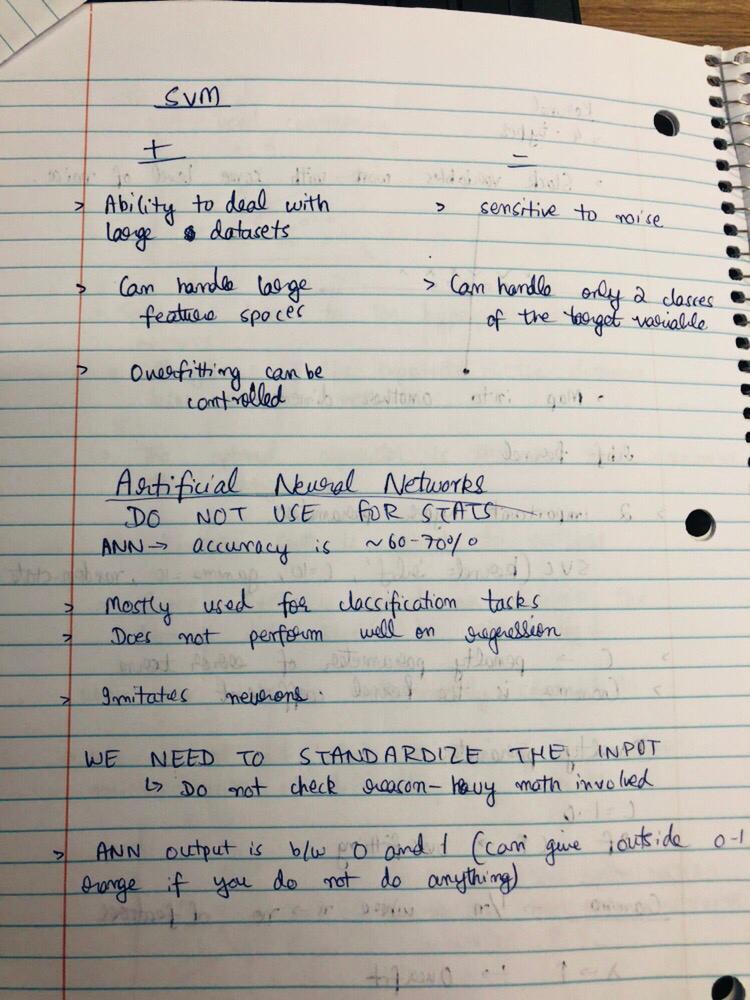 SVM
+
Ability to deal with
large datasets
> Can handle large
feature spaces
> Overfitting can be
controlled
-
> sensitive to noise
> Can handle only 2 classes
of the target variable
Artificial Neural Networks
DO NOT USE FOR STATS
ANN → accuracy is ~60-70%
> Mostly used for classification tasks
> Does not perform well on regression
> Imitates neurons.
WE NEED TO STANDARDIZE THE INPUT
↳ Do not check reason - hevy math involved
> ANN output is b/w 0 and 1 (can give outside 0-1
range if you do not do anything)